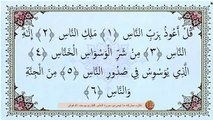 قُلْ أَعُوذُ بِرَبِّ النَّاسِ ﴿١﴾ مَلِكِ النَّاسِ ﴿٢﴾ إِلَٰهِ
النَّاسِ ﴿٣﴾ مِنْ شَرِّ الْوَسْوَاسِ الْخَنَّاسِ ﴿٤﴾
الَّذِي يُوَسْوِسُ فِي صُدُورِ النَّاسِ ﴿٥﴾ مِنَ الْجِنَّةِ
وَالنَّاسِ ﴿٦﴾